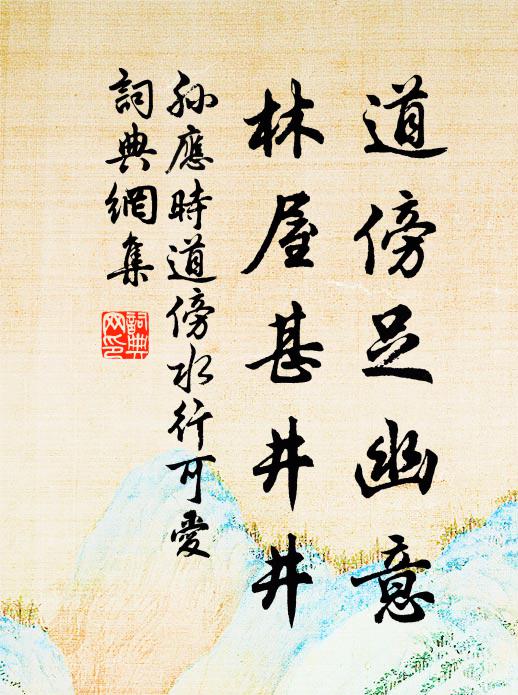 道傍足幽意
林屋甚井井
孫應時道傍水行可愛
詞典網集
詞典网印